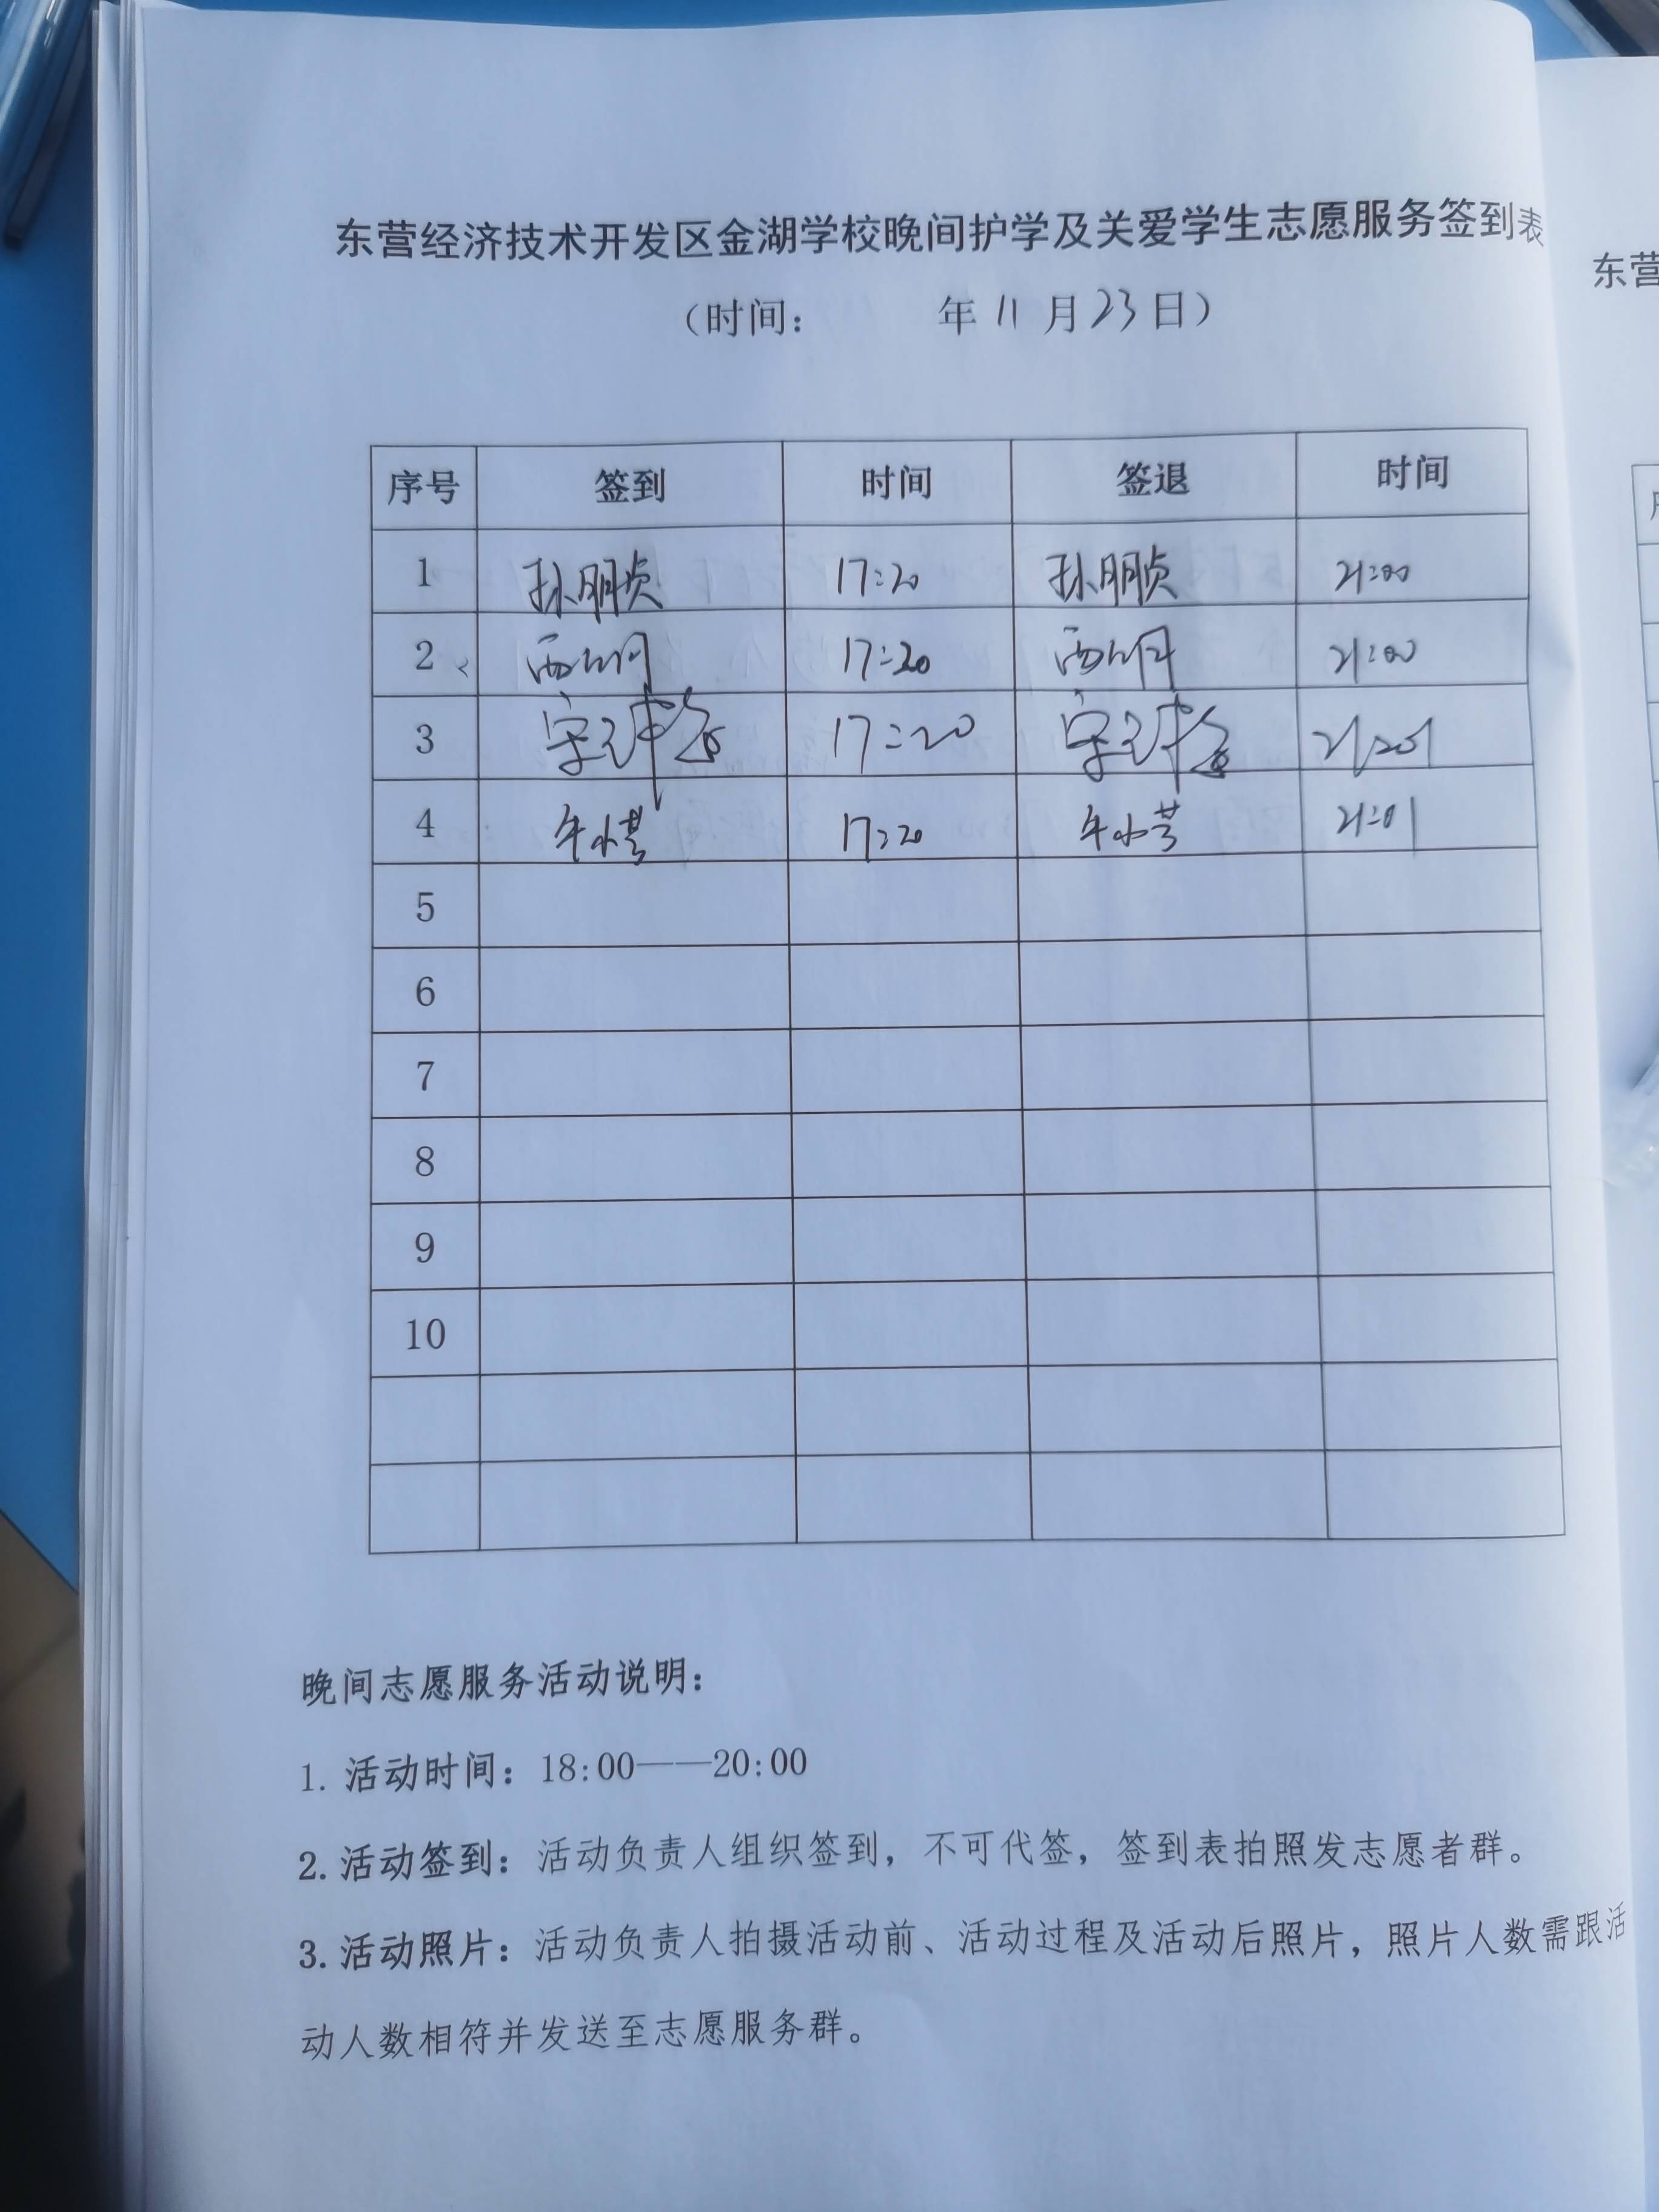 东营经济技术开发区金湖学校晚间护学及关爱学生志愿服务签到表
（时间： 年 11 月 23 日）
序号 签到 时间 签退 时间
1 孙朋贞 17:20 孙朋贞 21:00
2 17:20 21:00
3 17:20 21:01
4 17:20 21:01
5
6
7
8
9
10
晚间志愿服务活动说明：
1. 活动时间：18:00——20:00
2. 活动签到：活动负责人组织签到，不可代签，签到表拍照发志愿者群。
3. 活动照片：活动负责人拍摄活动前、活动过程及活动后照片，照片人数需跟活
动人数相符并发送至志愿服务群。
东营